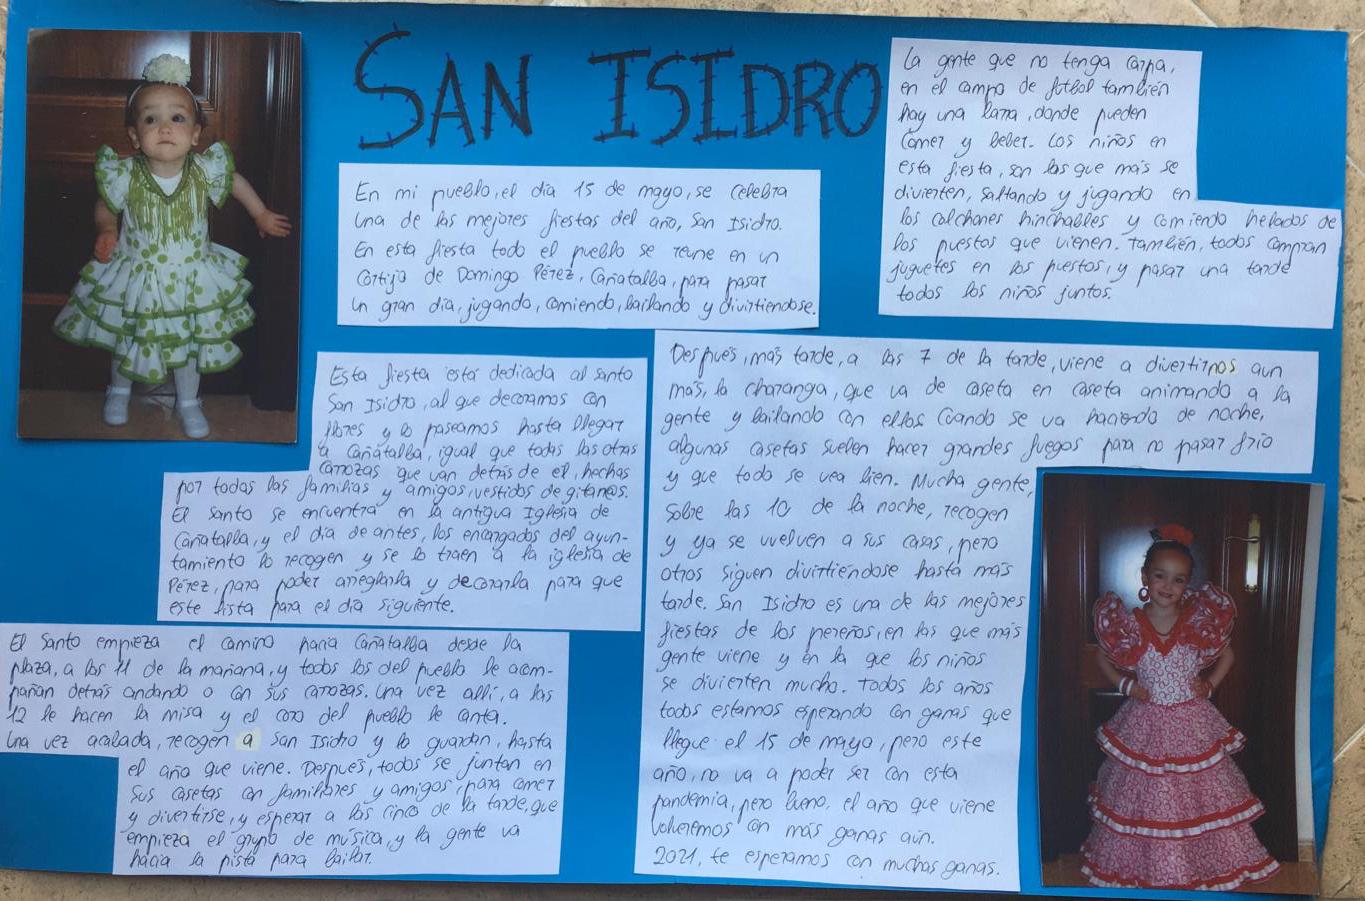 SAN ISIDRO
En mi pueblo, el día 15 de mayo, se celebra
una de las mejores fiestas del año, San Isidro.
En esta fiesta todo el pueblo se reune en un
Cortijo de Domingo Pérez, Cañatalba, para pasar
un gran día, jugando, comiendo, bailando y divirtiendose.
Esta fiesta está dedicada al santo
San Isidro, al que decoramos con
flores y lo paseamos hasta llegar
a Cañatalba, igual que todas las otras
carrozas que van detrás de el, hechas
por todas las familias y amigos, vestidos de gitan@s.
El santo se encuentra en la antigua Iglesia de
Cañatalba, y el día de antes, los encargados del ayun-
tamiento lo recogen y se lo traen a la iglesia de
Pérez, para poder arreglarla y decorarla para que
este lista para el día siguiente.
El santo empieza el camino hacia Cañatalba desde la
plaza, a las 11 de la mañana, y todos los del pueblo le acom-
pañan detrás andando o con sus carrozas. Una vez allí, a las
12 le hacen la misa y el coro del pueblo le canta.
Una vez acabada, recogen a San Isidro y lo guardan, hasta
el año que viene. Después, todos se juntan en
sus casetas con familiares y amigos, para comer
y divertirse, y esperar a las cinco de la tarde, que
empieza el grupo de música, y la gente va
hacia la pista para bailar.
La gente que no tenga carpa,
en el campo de fútbol también
hay una barra, donde pueden
comer y beber. Los niños en
esta fiesta, son los que más se
divierten, saltando y jugando en
los colchones hinchables y comiendo helados de
los puestos que vienen. También, todos compran
juguetes en los puestos, y pasar una tarde
todos los niños juntos.
Después, más tarde, a las 7 de la tarde, viene a divertirnos aun
más, la charanga, que va de caseta en caseta animando a la
gente y bailando con ellos. Cuando se va haciendo de noche,
algunas casetas suelen hacer grandes fuegos para no pasar frio
y que todo se vea bien. Mucha gente,
sobre las 10 de la noche, recogen
y ya se vuelven a sus casas, pero
otros siguen divirtiendose hasta más
tarde. San Isidro es una de las mejores
fiestas de los pereños, en las que más
gente viene y en la que los niños
se divierten mucho. Todos los años
todos estamos esperando con ganas que
llegue el 15 de mayo, pero este
año, no va a poder ser con esta
pandemia, pero bueno, el año que viene
volveremos con más ganas aún.
2021, te esperamos con muchas ganas.